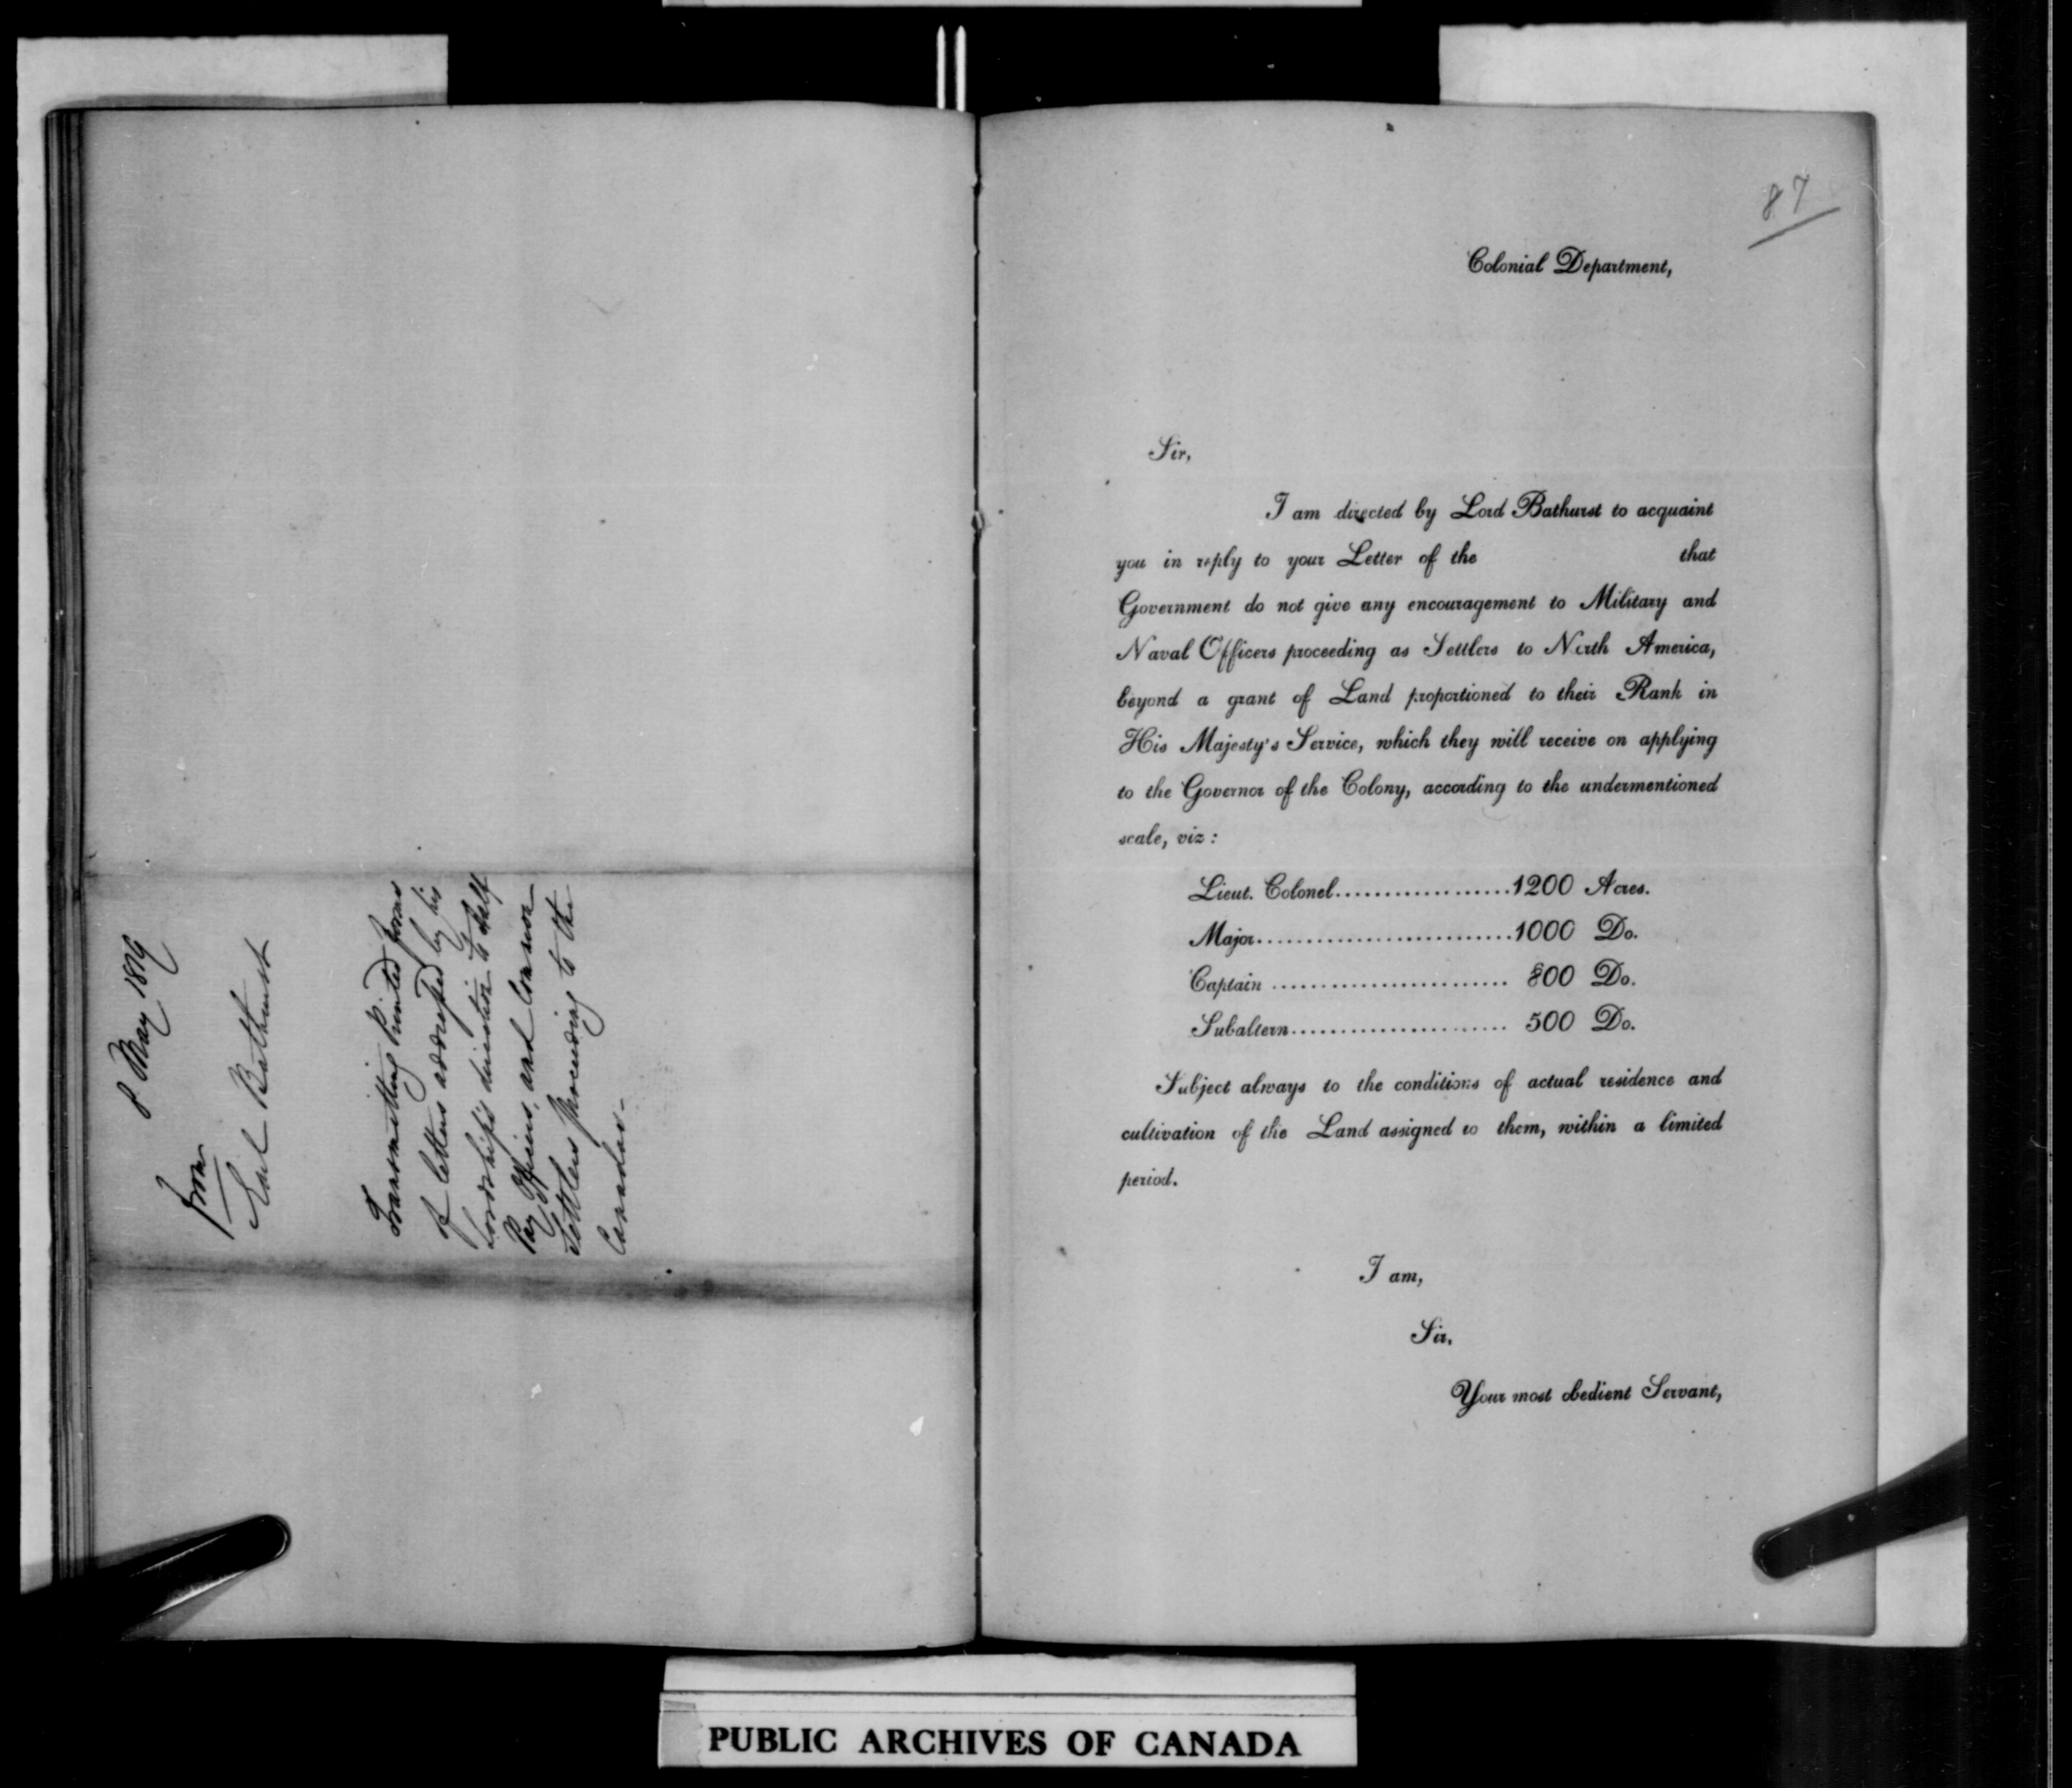 8 May 1819
From
Earl Bathurst
Transmitting Printed forms
of letters addressed by his
Lordship's direction to Half
Pay Officers, and Common
Settlers proceeding to the
Canadas.
87
Colonial Department,
Sir,
I am directed by Lord Bathurst to acquaint
you in reply to your Letter of the that
Government do not give any encouragement to Military and
Naval Officers proceeding as Settlers to North America,
beyond a grant of Land proportioned to their Rank in
His Majesty's Service, which they will receive on applying
to the Governor of the Colony, according to the undermentioned
scale, viz:
Lieut. Colonel..................1200 Acres.
Major..........................1000 Do.
Captain ........................ 800 Do.
Subaltern...................... 500 Do.
Subject always to the conditions of actual residence and
cultivation of the Land assigned to them, within a limited
period.
I am,
Sir.
Your most obedient Servant,
PUBLIC ARCHIVES OF CANADA